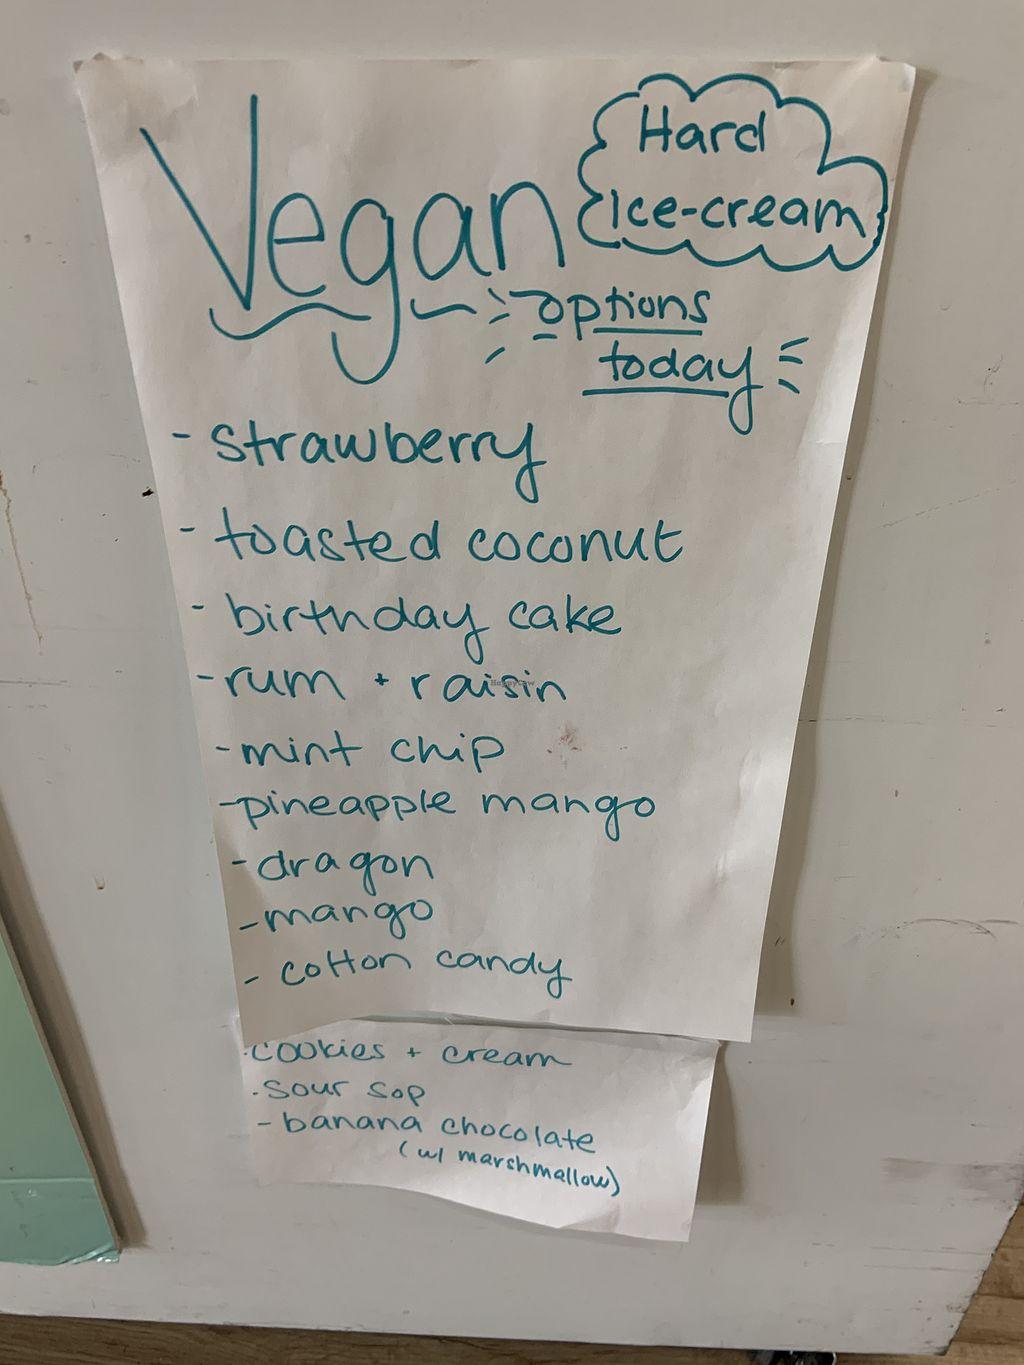 Vegan
Hard
Ice-cream
options
today
- strawberry
- toasted coconut
- birthday cake
- rum + raisin
- mint chip
- pineapple mango
- dragon
- mango
- cotton candy
- cookies + cream
- sour sop
- banana chocolate
(w/ marshmallow)
HappyCow